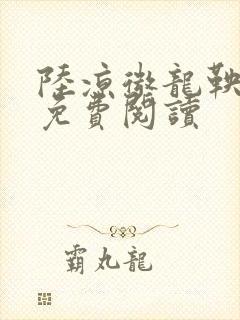 陸涼徹龍鞅
免費閱讀
霸丸龍